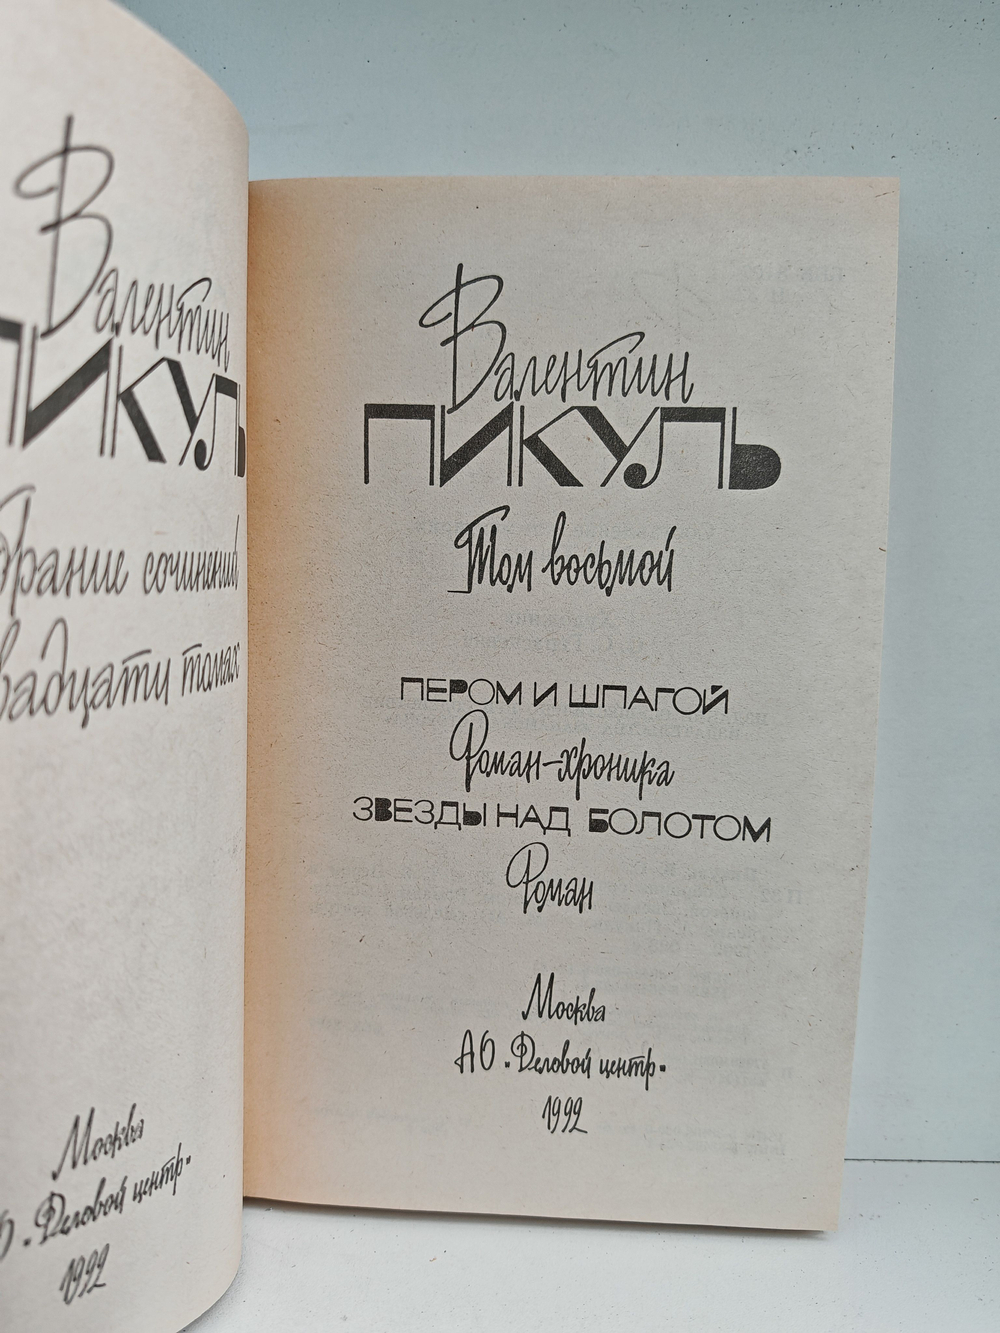 Валентин
ПИКУЛЬ
брание сочинений
вадцати томах
Москва
О „Деловой центр"
1992
Валентин
ПИКУЛЬ
Том восьмой
ПЕРОМ И ШПАГОЙ
Роман-хроника
ЗВЕЗДЫ НАД БОЛОТОМ
Роман
Москва
АО „Деловой центр"
1992